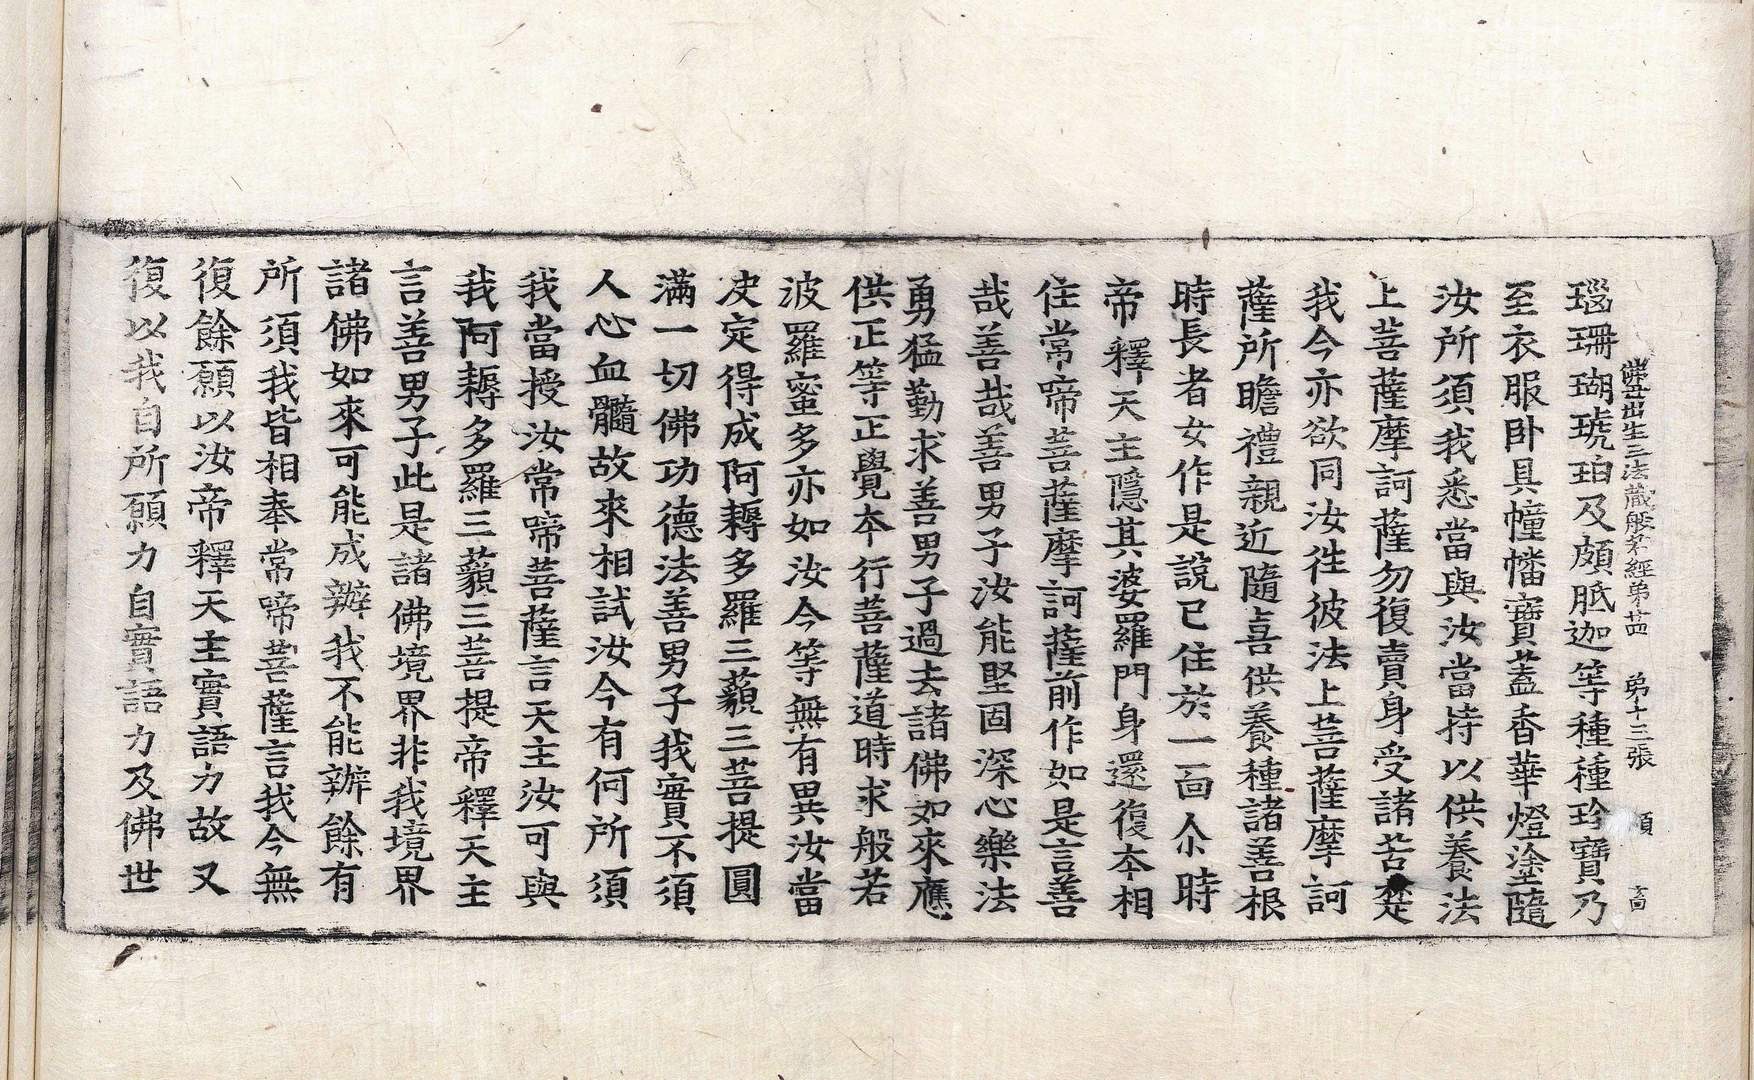 佛母出生三法藏般若經第廿四　第十三張　傾
瑙珊瑚琥珀及頗胝迦等種種珍寶乃
至衣服卧具幢幡寶蓋香華燈塗隨
汝所須我悉當與汝當持以供養法
上菩薩摩訶薩勿復賣身受諸苦楚
我今亦欲同汝徃彼法上菩薩摩訶
薩所瞻禮親近隨喜供養種諸善根
時長者女作是說已住於一面尒時
帝釋天主隱其婆羅門身還復本相
住常啼菩薩摩訶薩前作如是言善
哉善哉善男子汝能堅固深心樂法
勇猛勤求善男子過去諸佛如來應
供正等正覺本行菩薩道時求般若
波羅蜜多亦如汝今等無有異汝當
决定得成阿耨多羅三藐三菩提圓
滿一切佛功德法善男子我實不須
人心血髓故來相試汝今有何所須
我當授汝常啼菩薩言天主汝可與
我阿耨多羅三藐三菩提帝釋天主
言善男子此是諸佛境界非我境界
諸佛如來可能成辦我不能辦餘有
所須我皆相奉常啼菩薩言我今無
復餘願以汝帝釋天主實語力故又
復以我自所願力自實語力及佛世